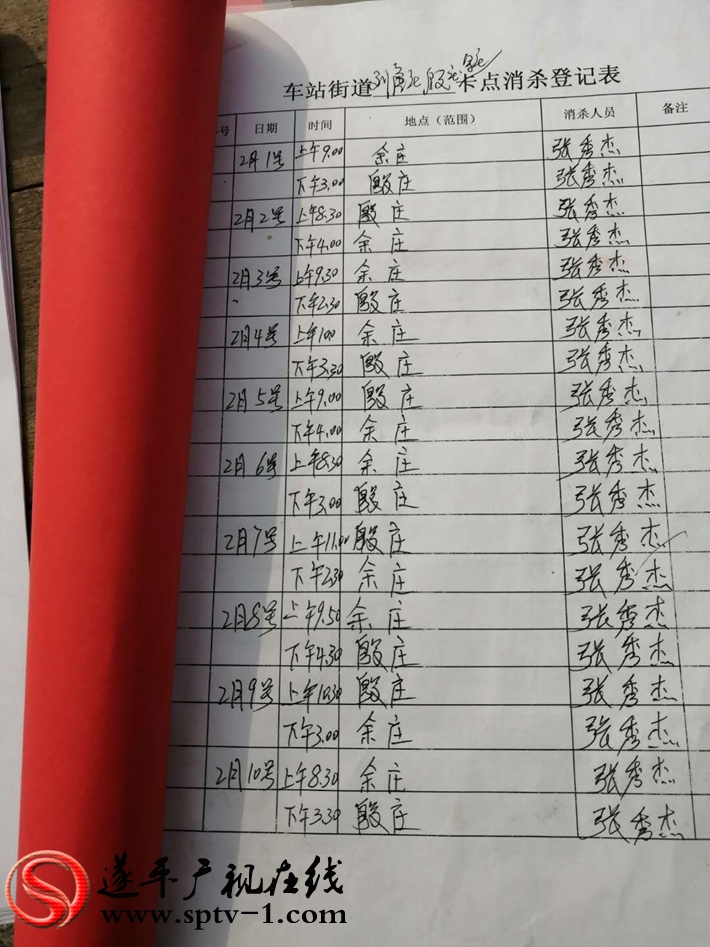 车站街道 卡点消杀登记表
号 日期 时间 地点（范围） 消杀人员 备注
2月1号 上午9.00 余庄 张秀杰
下午3.00 殷庄 张秀杰
2月2号 上午8.30 殷庄 张秀杰
下午4.00 余庄 张秀杰
2月3号 上午9.30 余庄 张秀杰
下午2.30 殷庄 张秀杰
2月4号 上午 余庄 张秀杰
下午3.30 殷庄 张秀杰
2月5号 上午9.00 殷庄 张秀杰
下午4.00 余庄 张秀杰
2月6号 上午8.30 余庄 张秀杰
下午3.00 殷庄 张秀杰
2月7号 上午11.00 殷庄 张秀杰
下午2.30 余庄 张秀杰
2月8号 上午9.50 余庄 张秀杰
下午4.30 殷庄 张秀杰
2月9号 上午10.30 殷庄 张秀杰
下午3.00 余庄 张秀杰
2月10号 上午8.30 余庄 张秀杰
下午3.30 殷庄 张秀杰
遂平广视在线
www.sptv-1.com